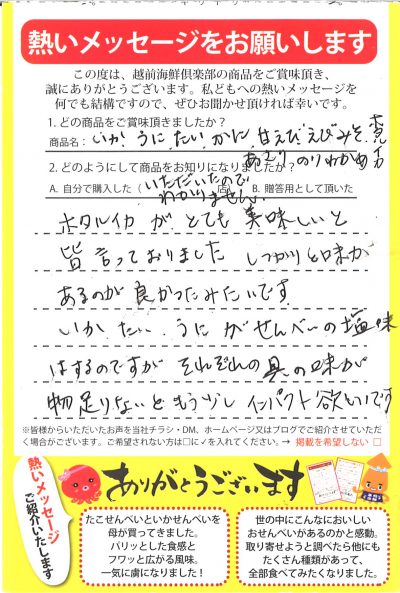 熱いメッセージをお願いします
この度は、越前海鮮倶楽部の商品をご賞味頂き、
誠にありがとうございます。私どもへの熱いメッセージを
何でも結構ですので、ぜひお聞かせ頂ければ幸いです。
1. どの商品をご賞味頂きましたか？
商品名： いか、うに、たい、かに、甘えび、えびみそ、
あさり、のりわかめ
2. どのようにして商品をお知りになりましたか？
A. 自分で購入した（ 店） B. 贈答用として頂いた
いただいたので
わかりません。
ホタルイカ が、とても 美味しいと
皆 言っておりました しっかりと味が
あるのが 良かったみたいです
いか、たい、うに がせんべいの塩味
はするのですが それぞれの 具の味が
物足りないと もう少し インパクト 欲しいです
※皆様からいただいたお声を当社チラシ・DM、ホームページ又はブログでご紹介させていただく場合がございます。ご希望されない方は□に✓を入れてください。→ 掲載を希望しない □
熱いメッセージ
ご紹介いたします
ありがとうございます
たこせんべいといかせんべいを
母が買ってきました。
パリッとした食感と
フワッと広がる風味。
一気に虜になりました！
世の中にこんなにおいしい
おせんべいがあるのかと感動。
取り寄せようと調べたら他にも
たくさん種類があって、
全部食べてみたくなりました。